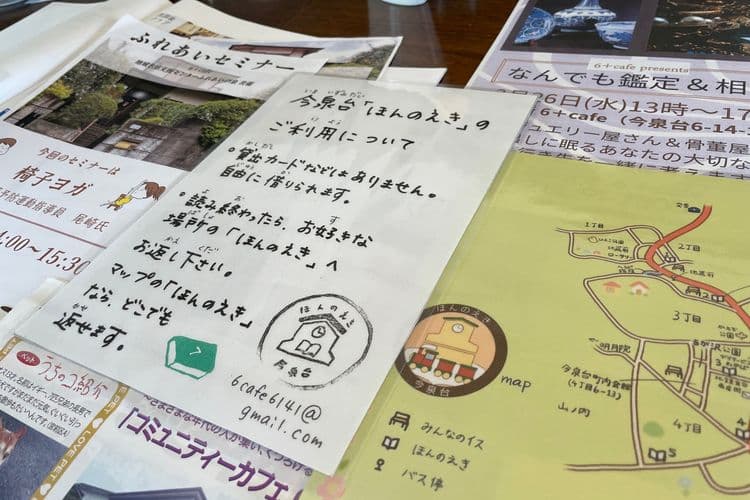 ふれあいセミナー
今回のセミナーは
椅子ヨガ
尾崎氏
:00〜15:30
今泉台「ほんのえき」の
ご利用について
・貸出カードなどはありません。
自由に借りられます。
・読み終わったら、お好きな
場所の「ほんのえき」へ
お返し下さい。
マップの「ほんのえき」
なら、どこでも
返せます。
ほんのえき
今泉台
6cafe6141@
gmail.com
6+cafe presents
なんでも鑑定&相
26日(水)13時〜17
6+cafe(今泉台6-14-
ュエリー屋さん&骨董屋
に眠るあなたの大切な
ペット
うちのコ紹介
LOVE PET
「コミュニティーカフェ
ほんのえき
今泉台
map
みんなのイス
ほんのえき
バス停
交番
1丁目
2丁目
3丁目
4丁目
明月院
今泉台町内会館
(4丁目6-13)
山ノ内